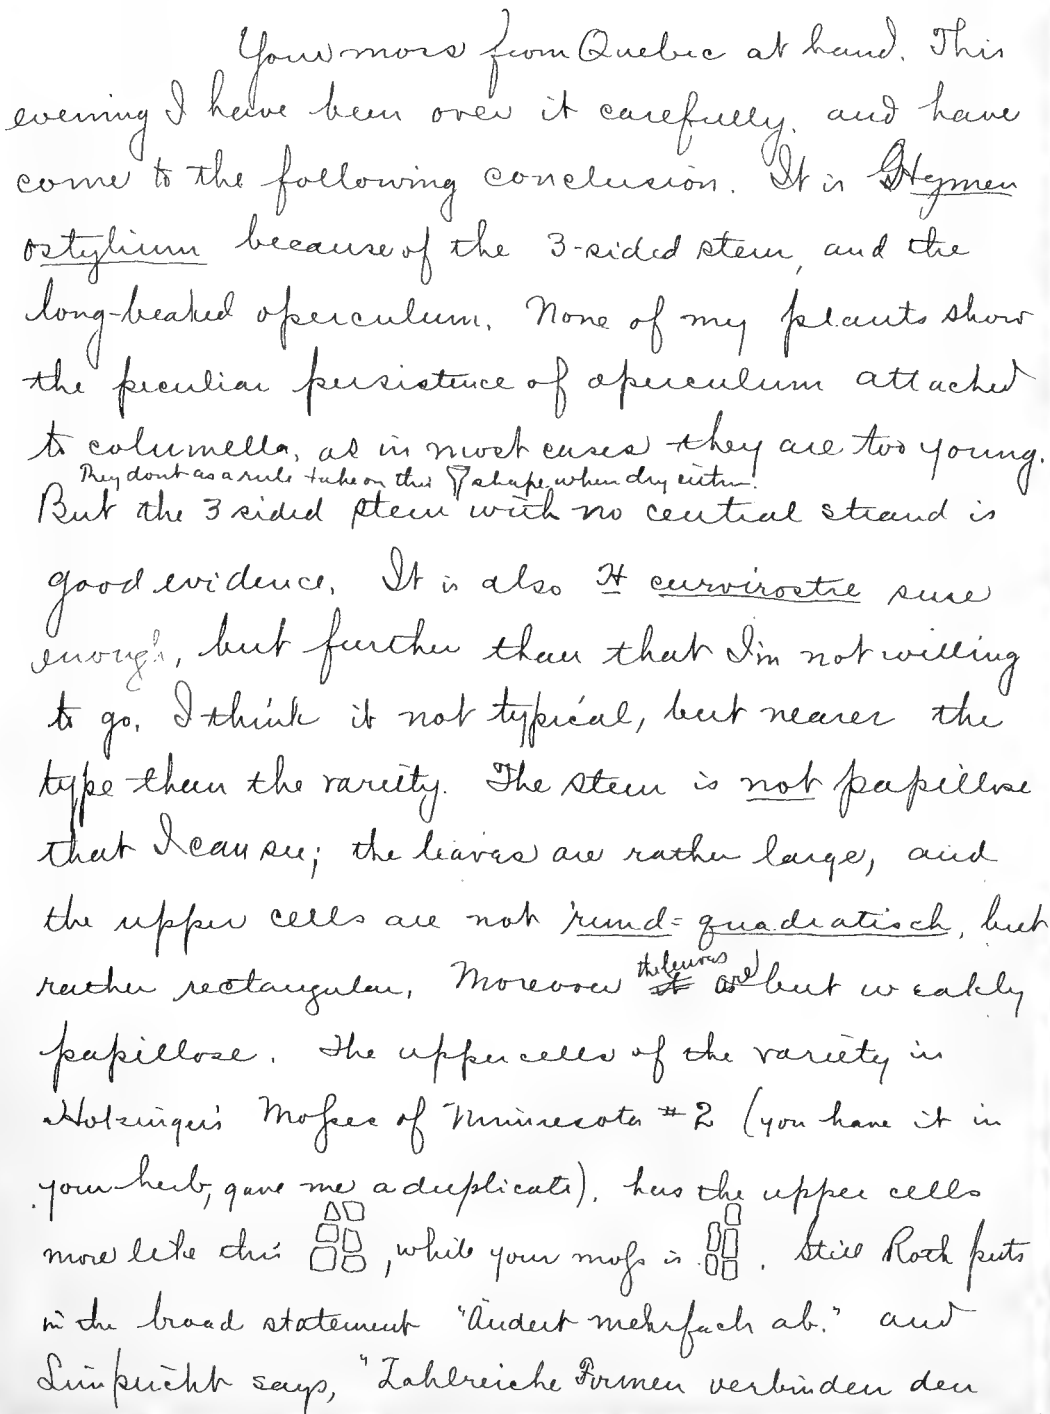 Your moss from Quebec at hand. This
evening I have been over it carefully, and have
come to the following conclusion. It is Hymen
ostylium because of the 3-sided stem, and the
long-beaked operculum. None of my plants show
the peculiar persistence of operculum attached
to columella, as in most cases they are too young.
They dont as a rule take on this shape when dry either.
But the 3 sided stem with no central strand is
good evidence. It is also H curvirostre sure
enough, but further than that I'm not willing
to go. I think it not typical, but nearer the
type than the variety. The stem is not papillose
that I can see; the leaves are rather large, and
the upper cells are not rund=quadratisch, but
rather rectangular. Moreover the leaves are but weakly
papillose. The upper cells of the variety in
Holzinger's Mosses of Minnesota #2 (you have it in
your herb, gave me a duplicate), has the upper cells
more like this , while your moss is . Still Roth puts
in the broad statement "Ändert mehrfach ab." and
Limpricht says, "Zahlreiche Formen verbinden den